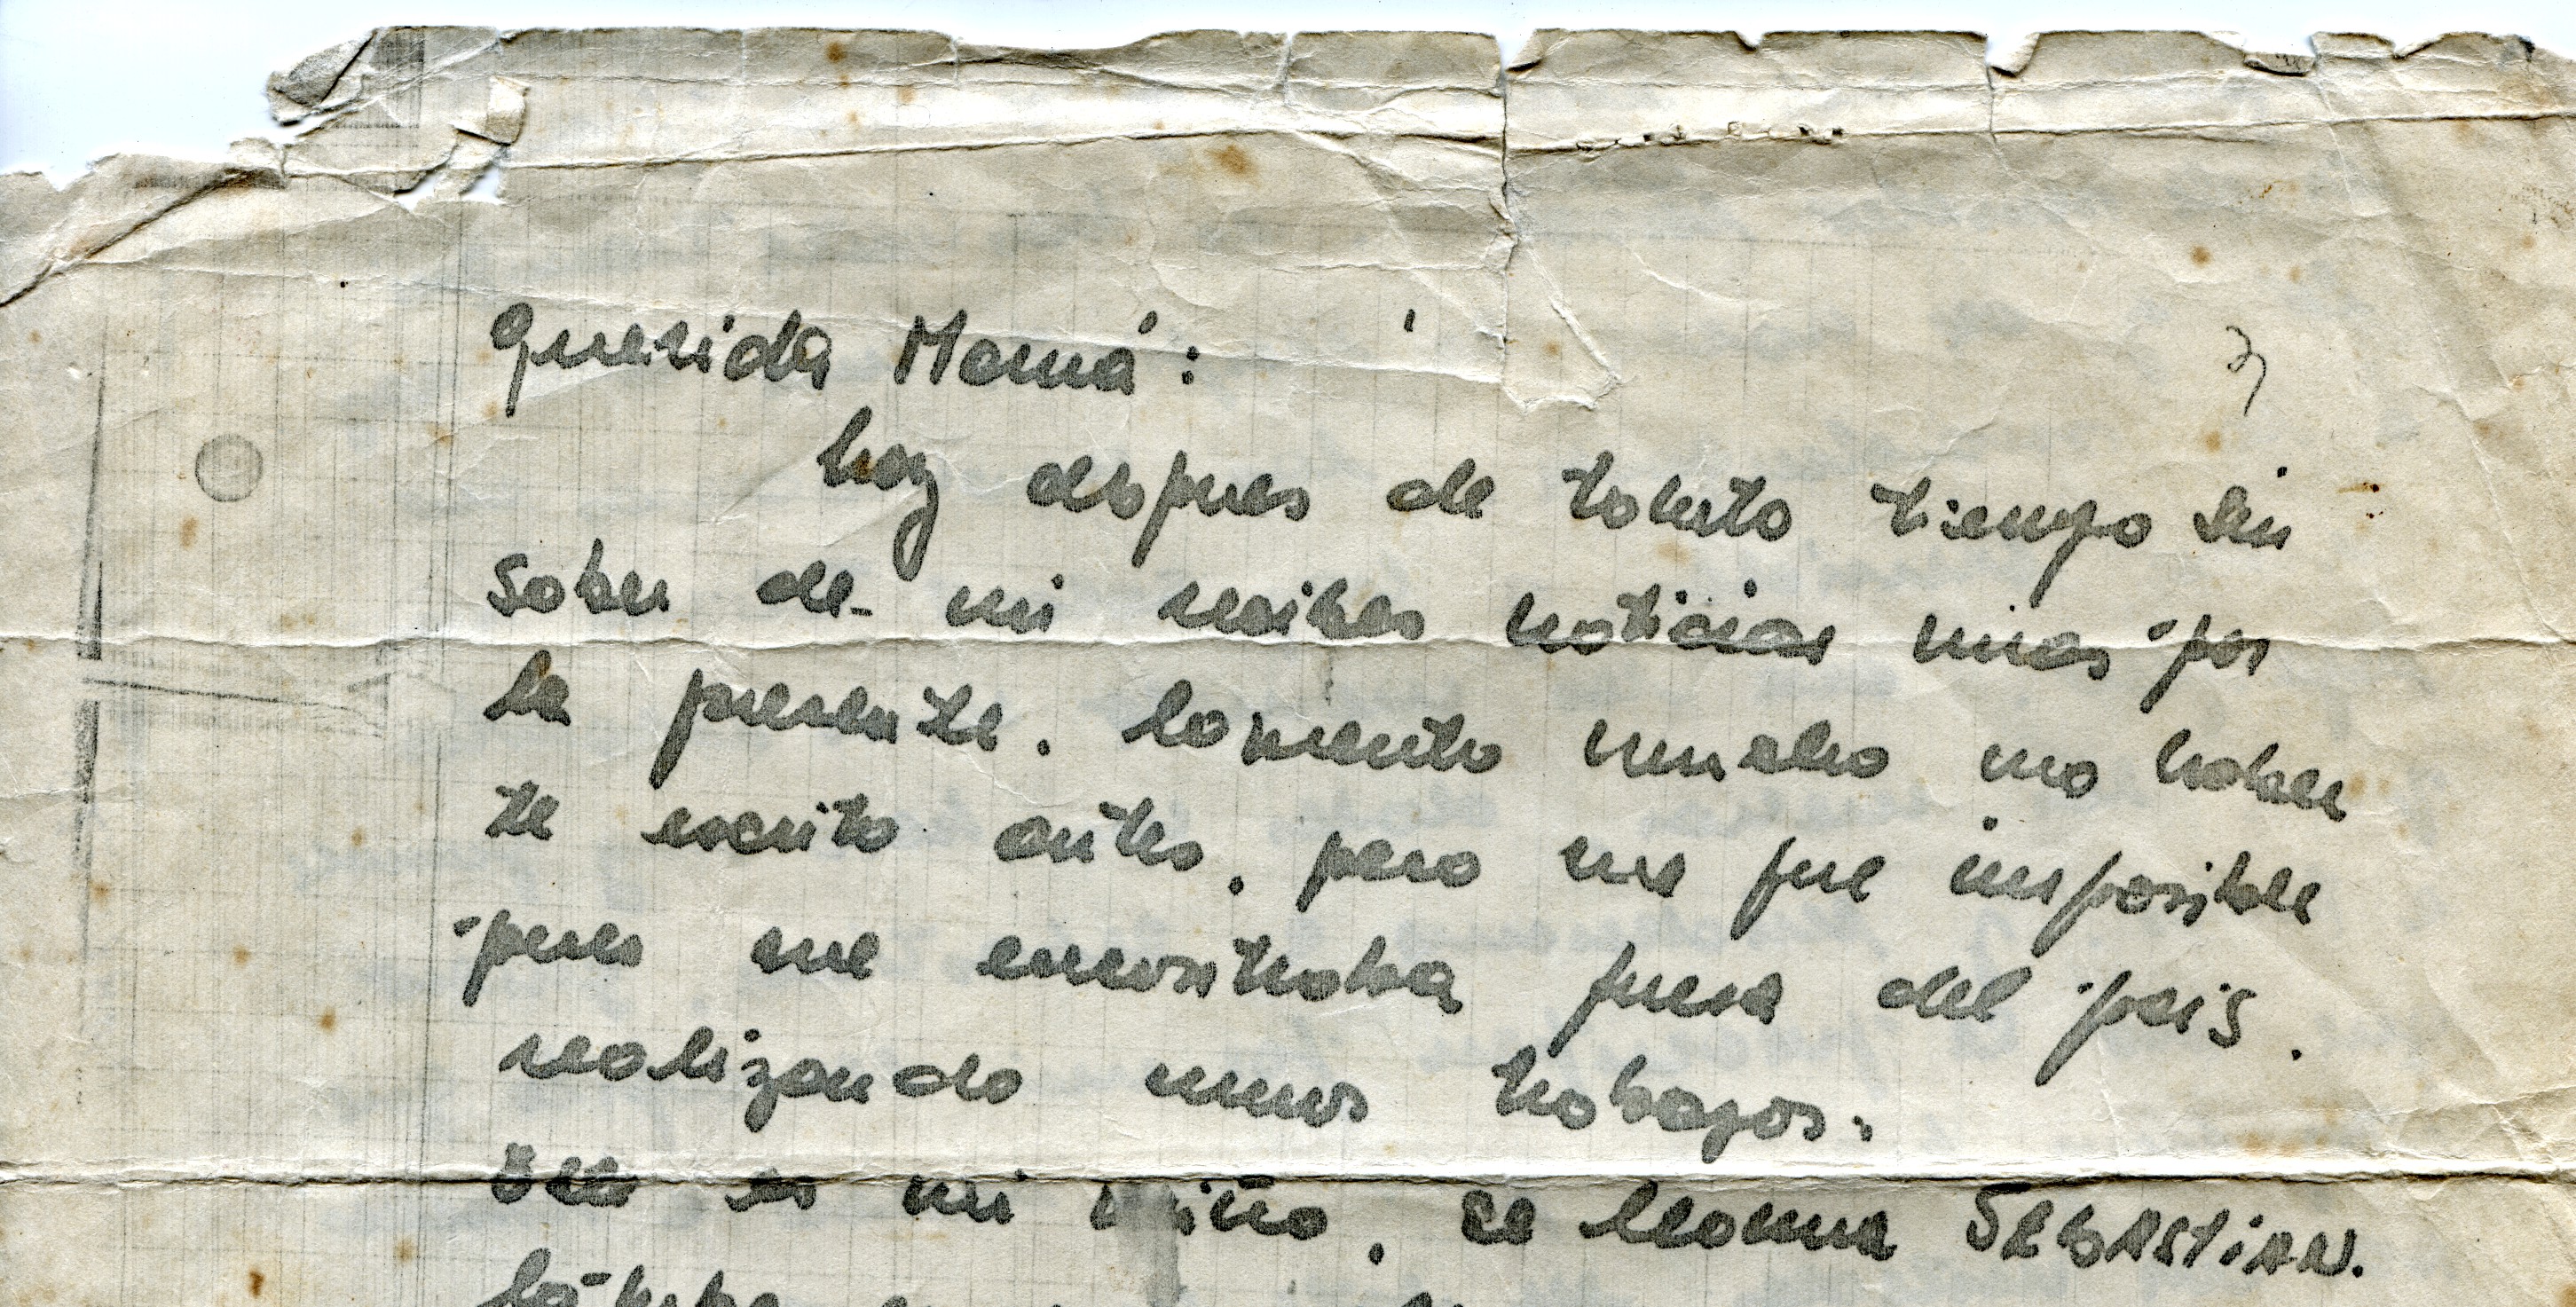 Querida Mamá:
3
hoy despues de tanto tiempo sin
saber de mi recibes noticias mias por
la presente. lamento mucho no haber
te escrito antes, pero me fue imposible
pues me encontraba fuera del pais.
realizando unos trabajos.
Este es mi niño, se llama SEBASTIAN.